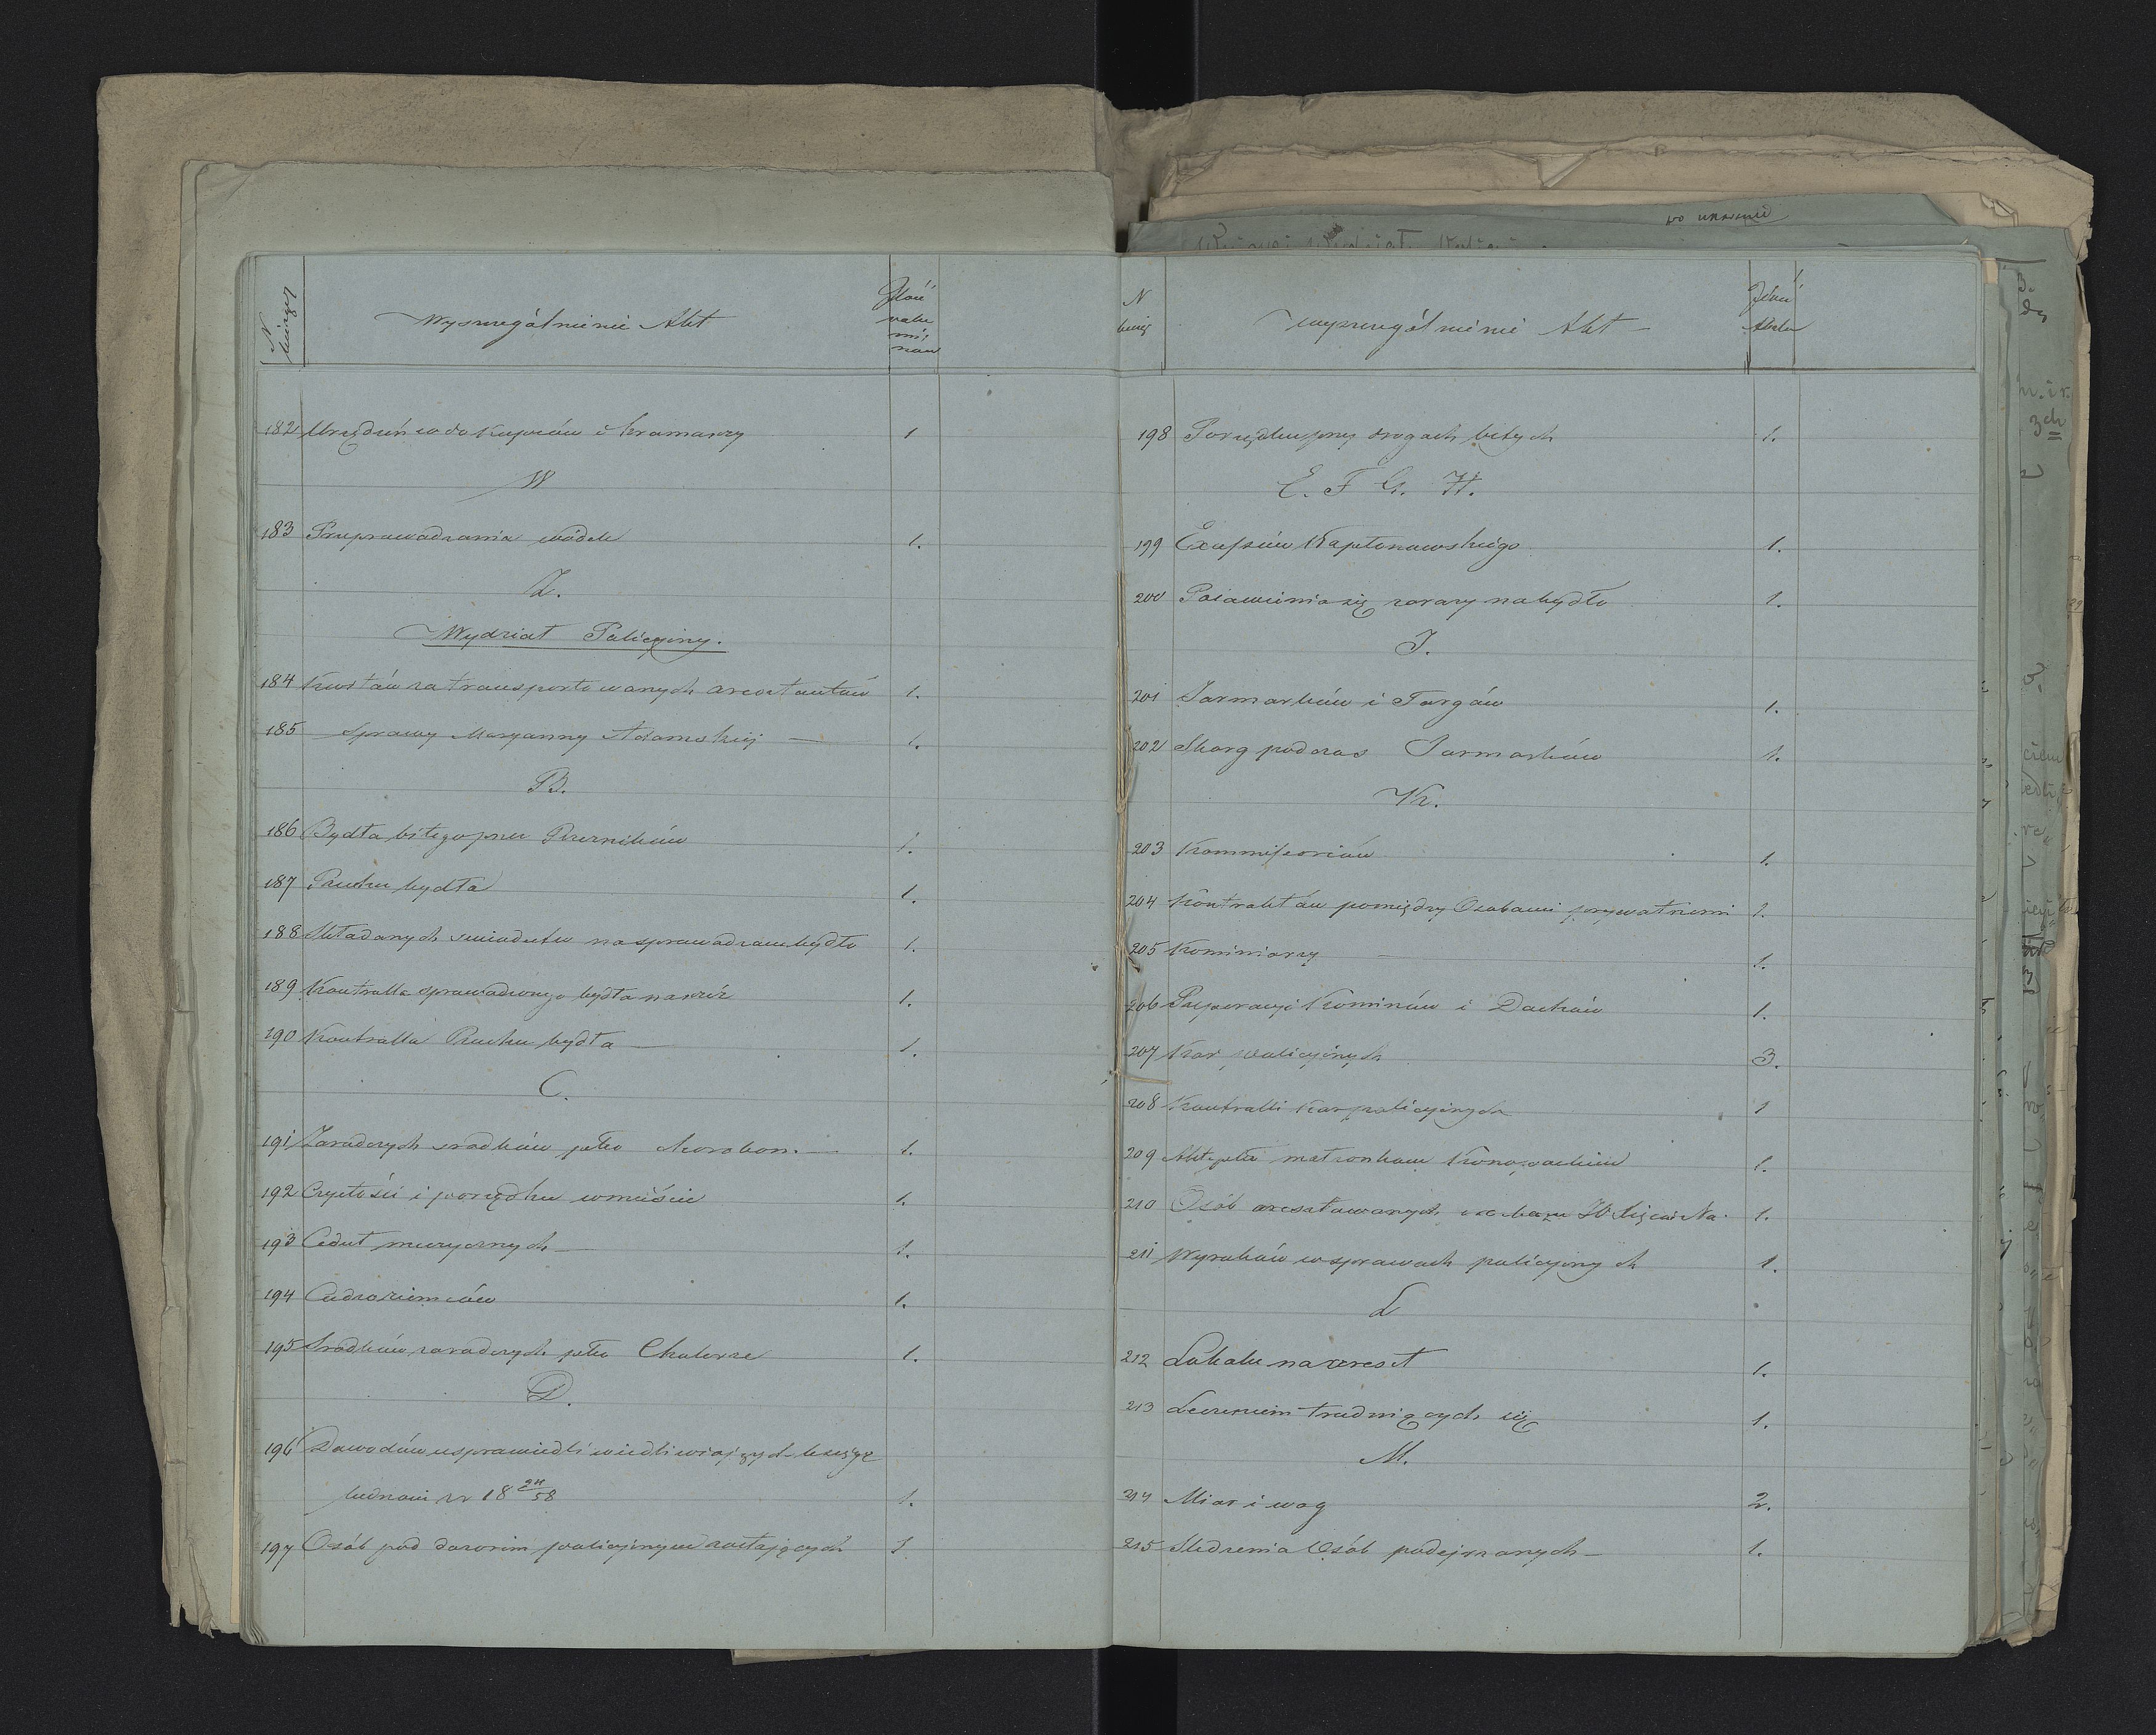 N bieżący
Wyszczegolnienie Akt
Ilość
volu
mi
now
182 Urządzeń co do Kupców i kramarzy 1
W
183 Przeprowadzania wódek 1.
Z.
Wydział Policyjny.
184 Kosztów za transportowanych aresztantów 1.
185 Sprawy Maryanny Adamskiej — 1.
B.
186 Bydła bitego przez Rzeźników 1.
187 Ruchu bydła 1.
188 Składanych świadectw na sprowadzane bydło 1.
189 Kontrolla sprowadzonego bydła na rzeź 1.
190 Kontrolla Ruchu bydła — 1.
C.
191 Zaradczych srodków pko chorobom. — 1.
192 Czystości i porządku w mieście 1.
193 Ceduł muzycznych — 1.
194 Cudzoziemców 1.
195 Srodków zaradczych pko Cholerze 1.
D.
196 Dowodów usprawiedliwiedliwiających księgę
ludności z r 18 24/58 1.
197 Osób pod dozorem policyjnym zostających 1
N
bieżą
wyszczególnienie Akt —
Ilość
198 Porządku przy drogach bitych 1.
E. F G. H.
199 Excessów Kapłonowskiego 1.
200 Poiawienia się zarazy na bydło 1.
J.
201 Jarmarków i Targów 1.
202 Skarg podczas Jarmarków 1.
K.
203 Kommissoriów 1.
204 Kontraktów pomiędzy Osobami prywatnemi 1.
205 Kominiarzy 1.
206 Reperacyi Kominów i Dachów 1.
207 Kar policyjnych 3.
208 Kontrolli kar policyjnych 1
209 Akt pko małżonkom 1.
210 Osób aresztowanych 1.
211 Wyroków w sprawach policyjnych 1.
L
212 Lokalu na areszt 1.
213 Leczeniem trudniących się 1.
M.
214 Miar i wag 2.
215 Śledzenia Osób podejrzanych — 1.